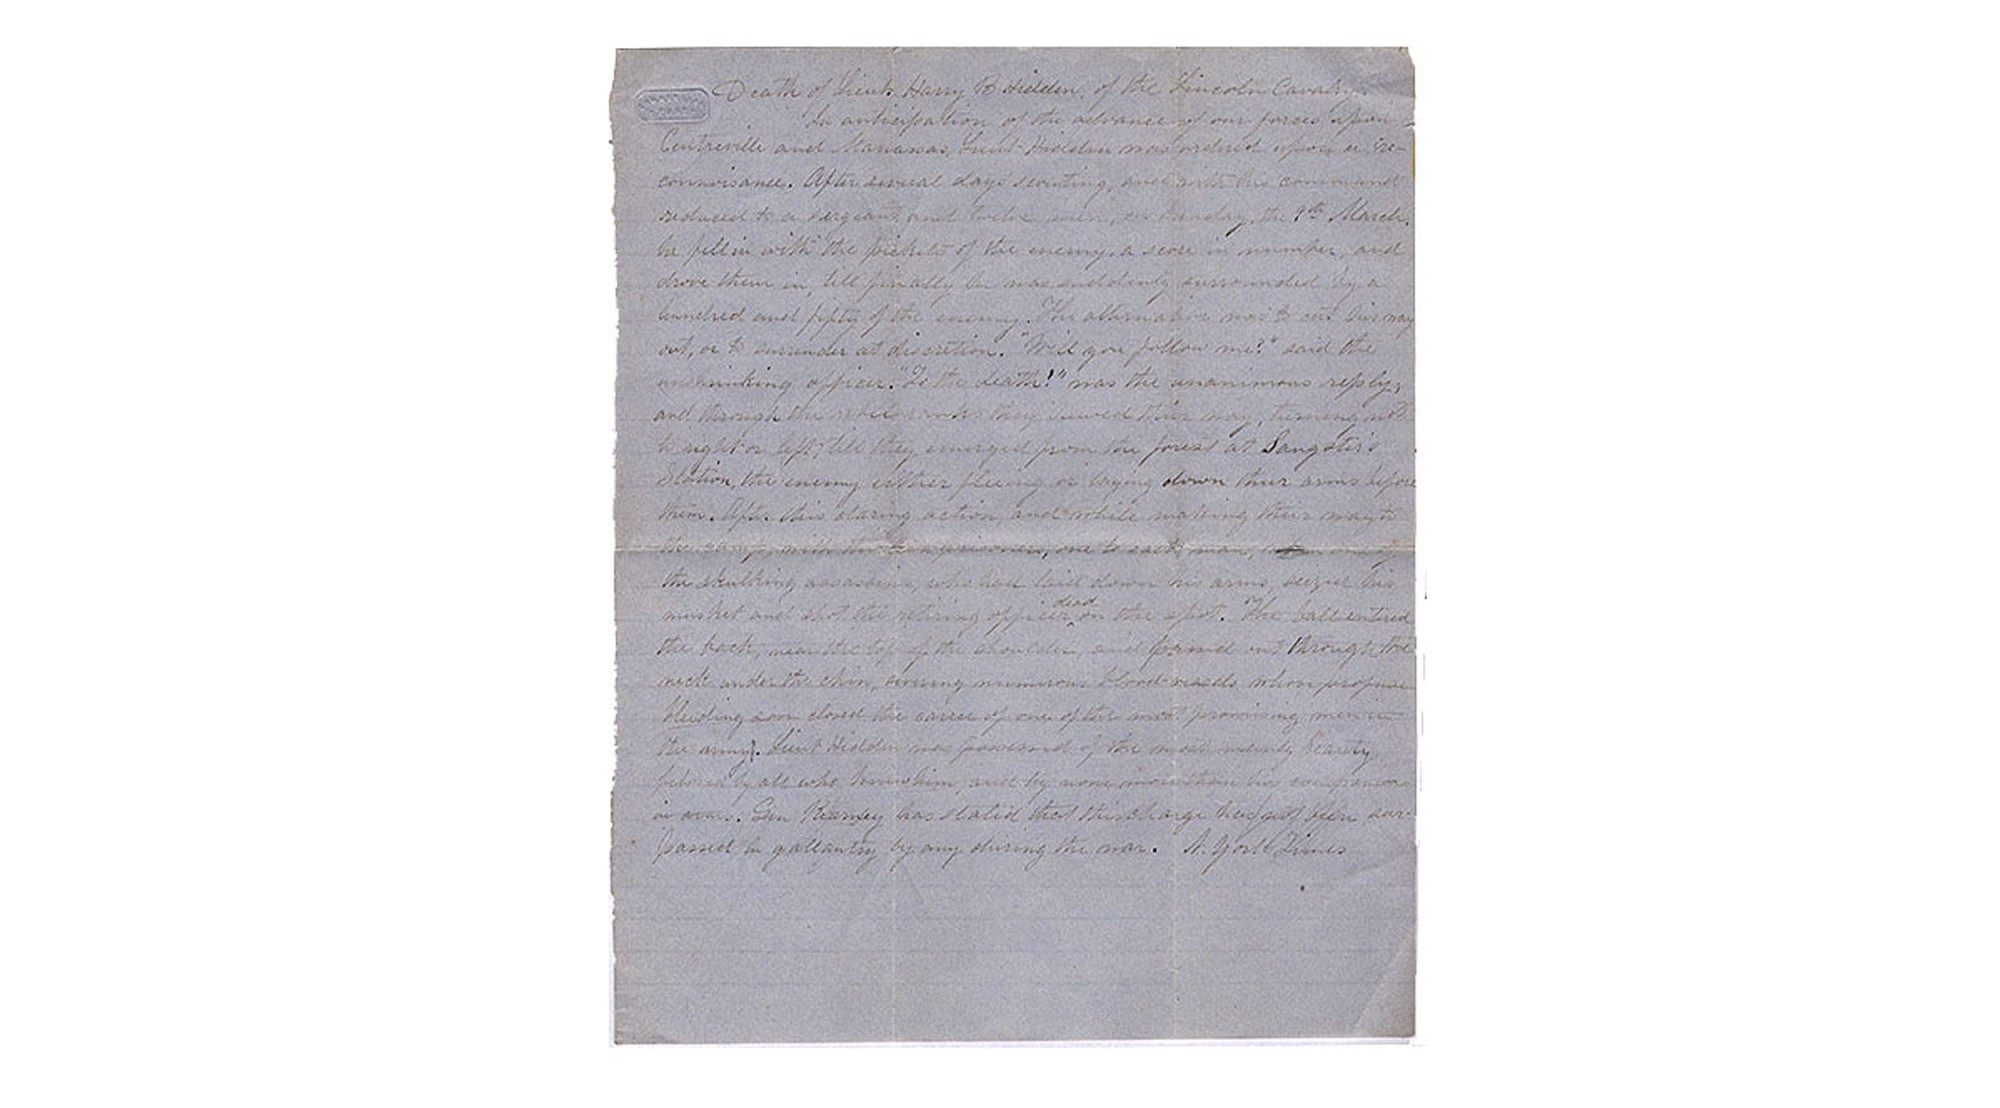 Death of Lieut. Harry B Hidden, of the Lincoln Cavalry.
In anticipation of the advance of our forces upon
Centreville and Manassas, Lieut Hidden was ordered upon a re-
connoisance. After several days scouting, and with his command
reduced to a sergeant and twelve men, on Sunday, the 9th March,
he fell in with the pickets of the enemy, a score in number, and
drove them in, till finally he was suddenly surrounded by a
hundred and fifty of the enemy. The alternative was to cut his way
out, or to surrender at discretion. "Will you follow me?" said the
unshrinking officer. "To the death!" was the unanimous reply,
and through the rebel ranks they hewed their way, turning not
to right or left, till they emerged from the forest at Sangster's
Station, the enemy either fleeing or laying down their arms before
them. After this daring action, and while making their way to
the camp, with thirteen prisoners, one to each man, one of
the skulking assassins, who had laid down his arms, seized his
musket and shot the retiring officer dead on the spot. The ball entered
the back, near the top of the shoulder, and passed out through the
neck under the chin, severing numerous blood-vessels whose profuse
bleeding soon closed the career of one of the most promising men in
the army. Lieut Hidden was possessed of the most manly beauty,
beloved by all who knew him, and by none more than his companions
in arms. Gen Kearney has stated that this charge has not been sur-
passed in gallantry by any during the war. N. York Times